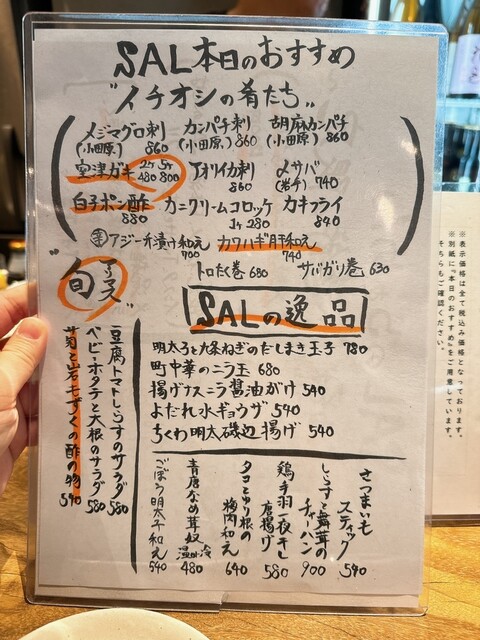 SAL本日のおすすめ
"イチオシの肴たち"
メジマグロ刺 カンパチ刺 胡麻カンパチ
(小田原) 860 (小田原) 860 (小田原) 860
室津ガキ 2ケ 480 3ケ 800 アオリイカ刺 860 〆サバ (岩手) 740
白子ポン酢 880 カニクリームコロッケ 1ヶ 280 カキフライ 840
アジ一弁漬け和え 700 カワハギ肝和え 740
トロたく巻 680 サバガリ巻 630
"旬 アテマス"
SALの逸品
明太子と九条ねぎのだしまき玉子 780
町中華のニラ玉 680
揚げナスニラ醤油がけ 540
よだれ水ギョウザ 540
ちくわ明太磯辺揚げ 540
豆腐トマトしらすのサラダ 580
ベビーホタテと大根のサラダ 580
菊と岩もずくの酢の物 540
さつまいもスティック 540
しらすと舞茸のチャーハン 900
鶏手羽一夜干し唐揚げ 580
タコとゆり根の梅肉和え 640
青唐なめ茸奴 温or冷 480
ごぼう明太子和え 540
※表示価格は全て税込み価格となっております。
※別紙に『本日のおすすめ』をご用意しています。
そちらもご確認ください。